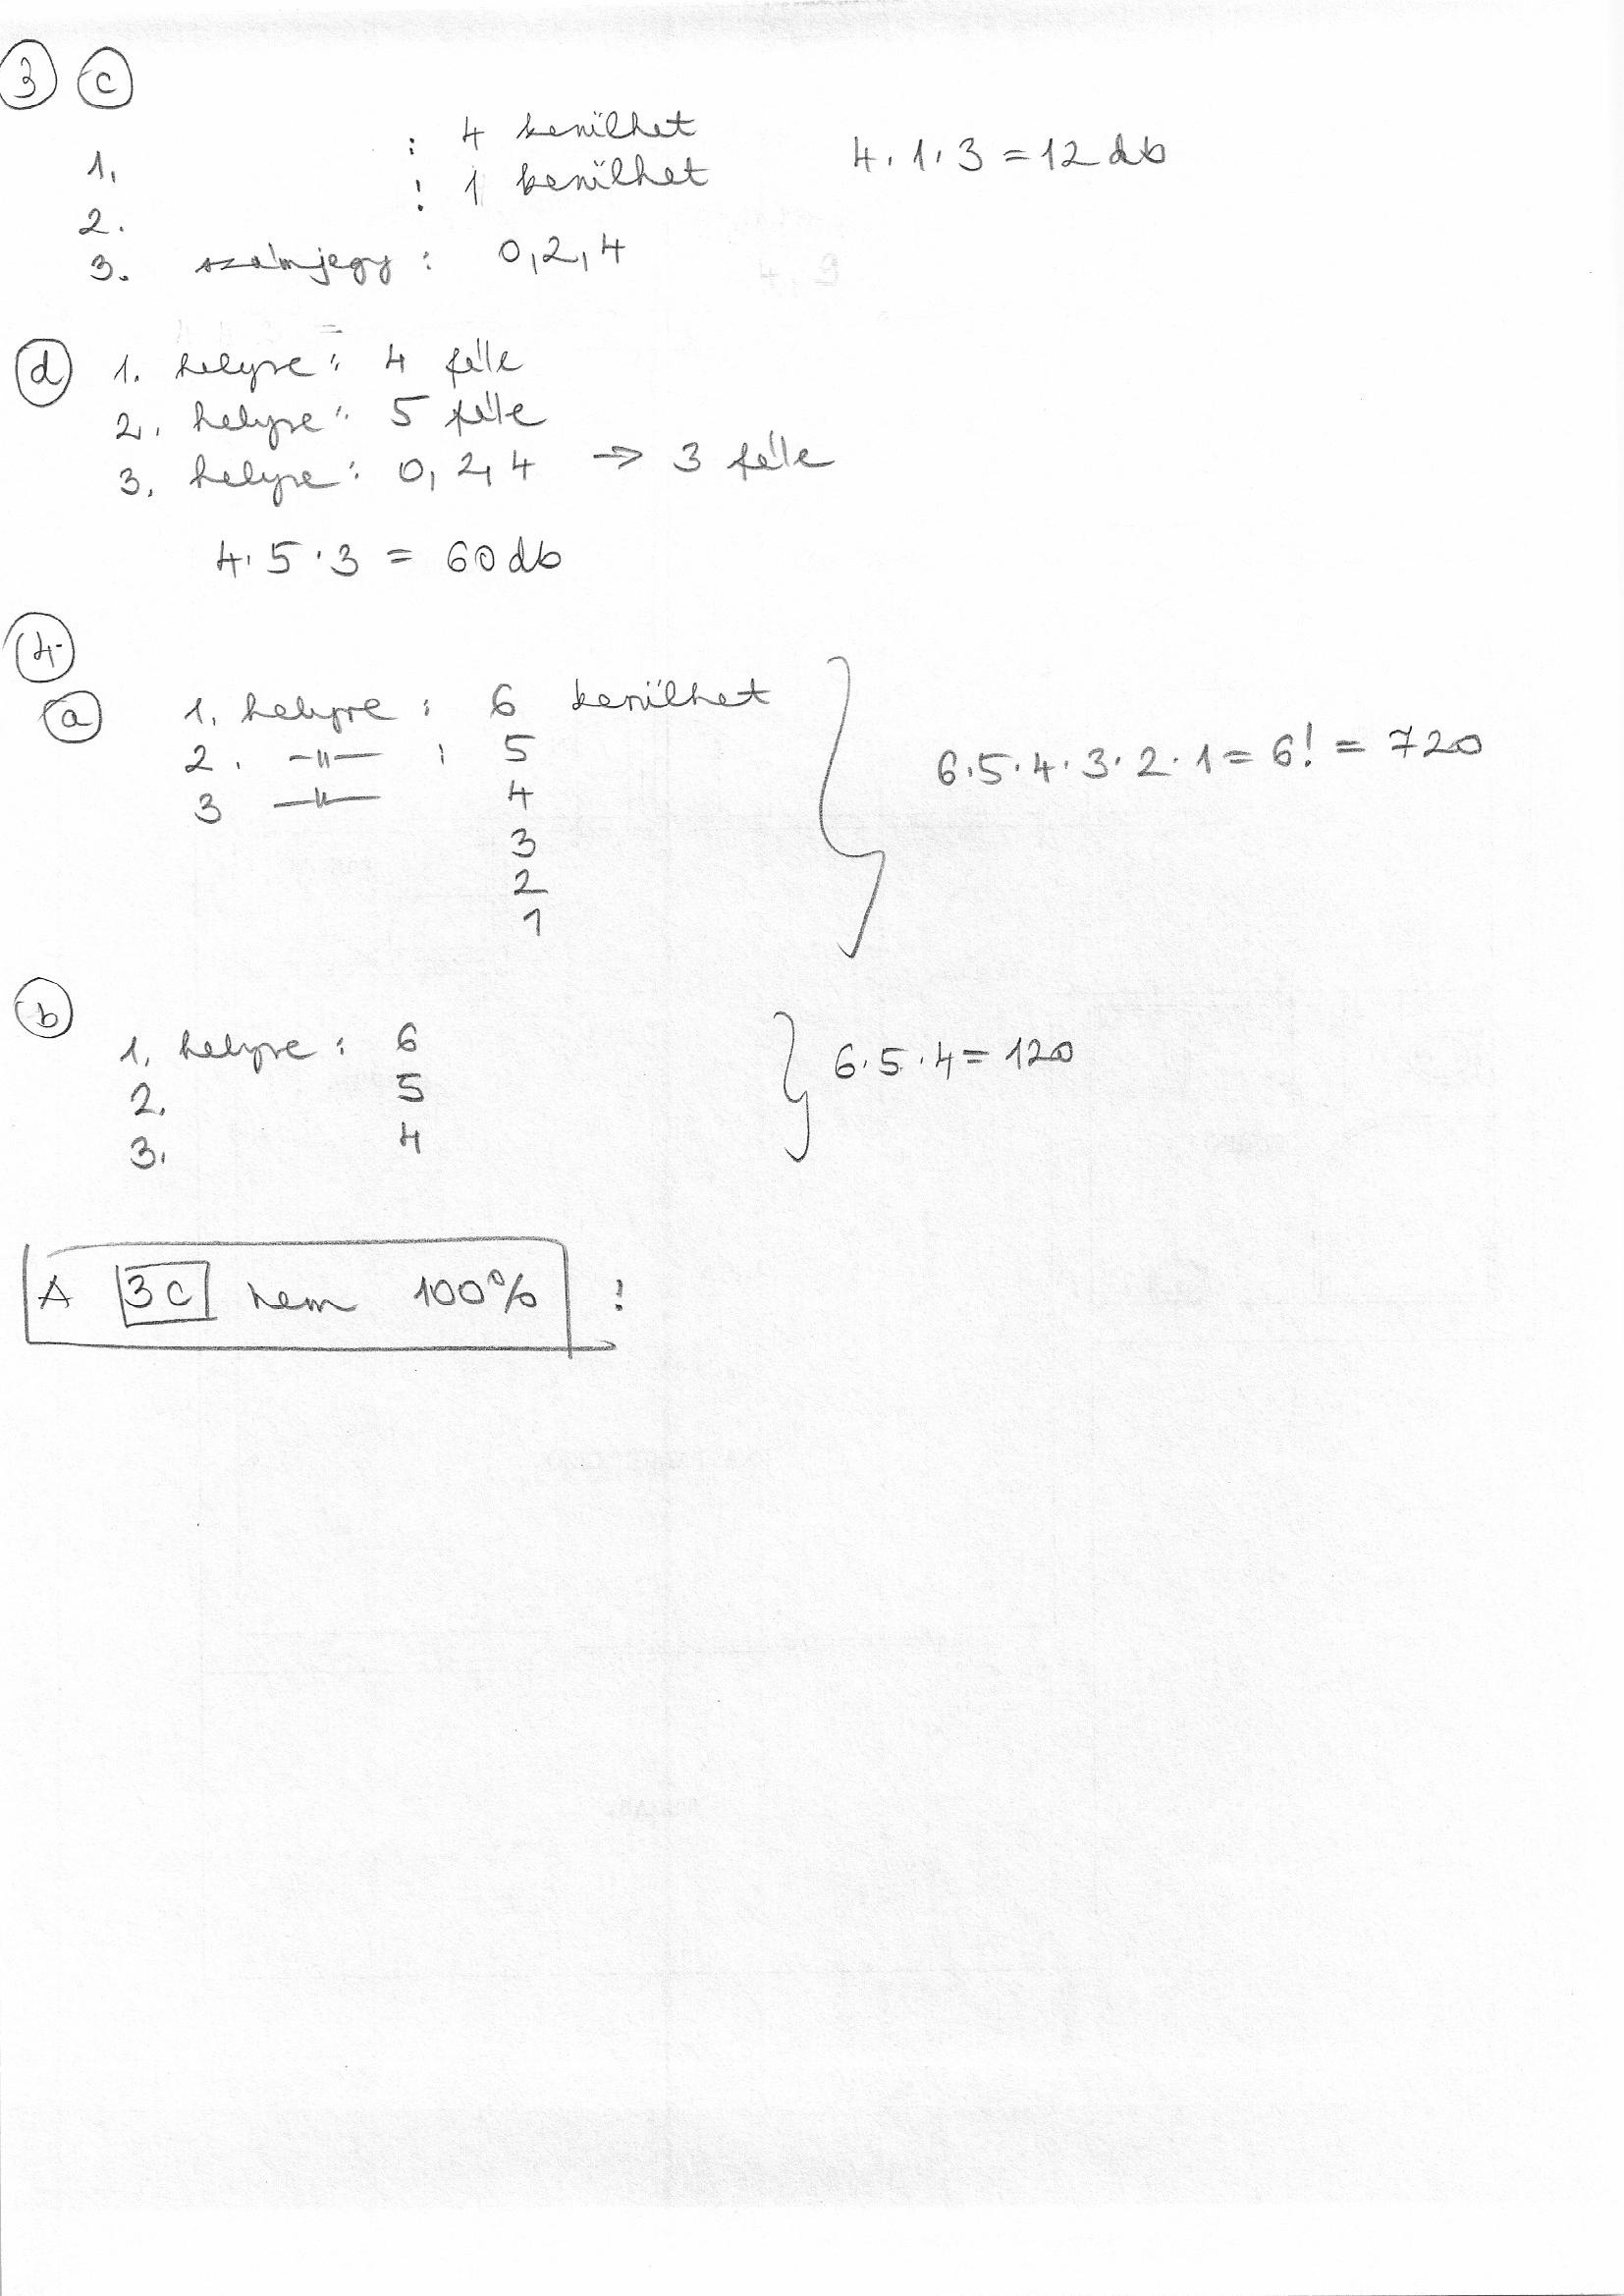 3 c
1. : 4 kerülhet 4·1·3=12 db
2. : 1 kerülhet
3. számjegy: 0,2,4
d 1. helyre: 4 féle
2. helyre: 5 féle
3. helyre: 0, 2, 4 → 3 féle
4·5·3 = 60 db
4.
a 1. helyre: 6 kerülhet
2. -||- : 5
6·5·4·3·2·1=6! = 720
3 -||- 4
3
2
1
b
1. helyre: 6
6·5·4=120
2. 5
3. 4
A 3c nem 100% !